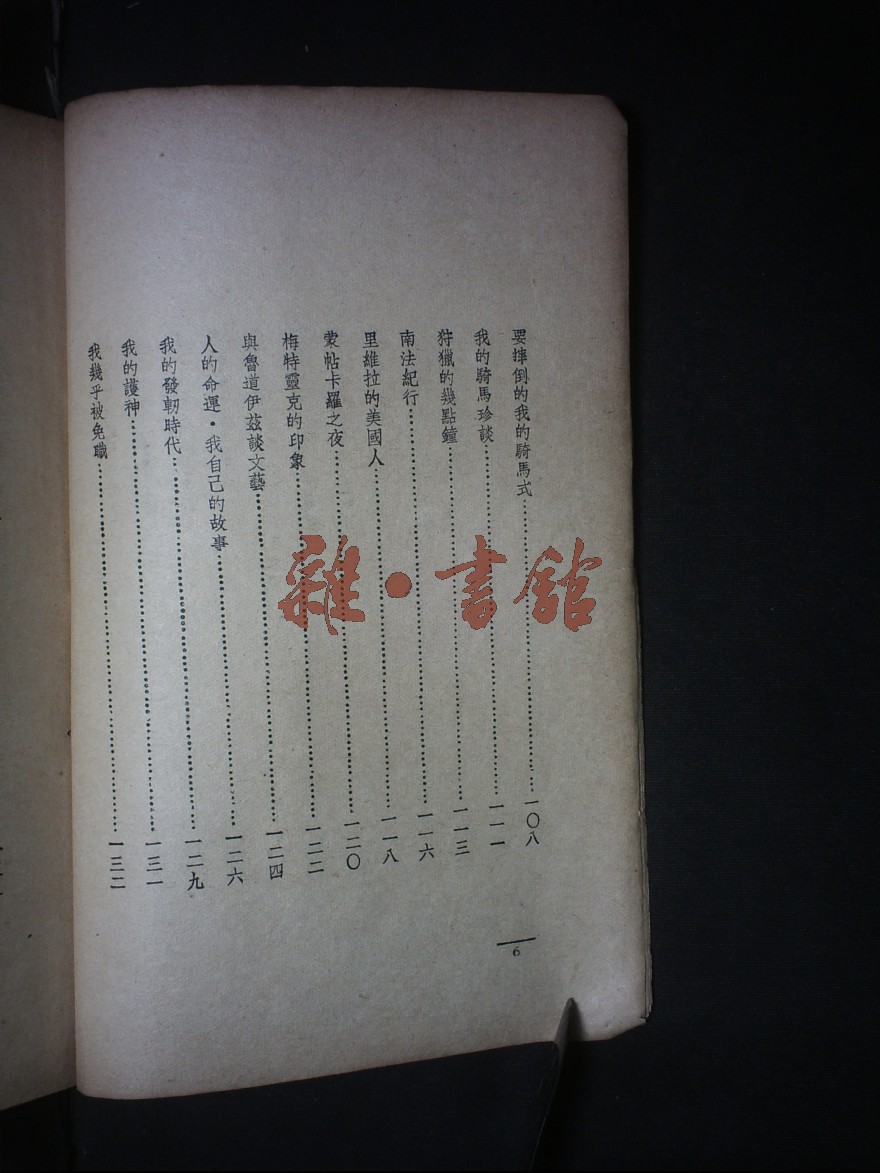 要摔倒的我的騎馬式…………一〇八
我的騎馬珍談…………一一一
狩獵的幾點鐘…………一一三
南法紀行…………一一六
里維拉的美國人…………一一八
蒙帖卡羅之夜…………一二〇
梅特靈克的印象…………一二二
與魯道伊茲談文藝…………一二四
人的命運・我自己的故事…………一二六
我的發軔時代…………一二九
我的護神…………一三一
我幾乎被免職…………一三二
6
雜・書館